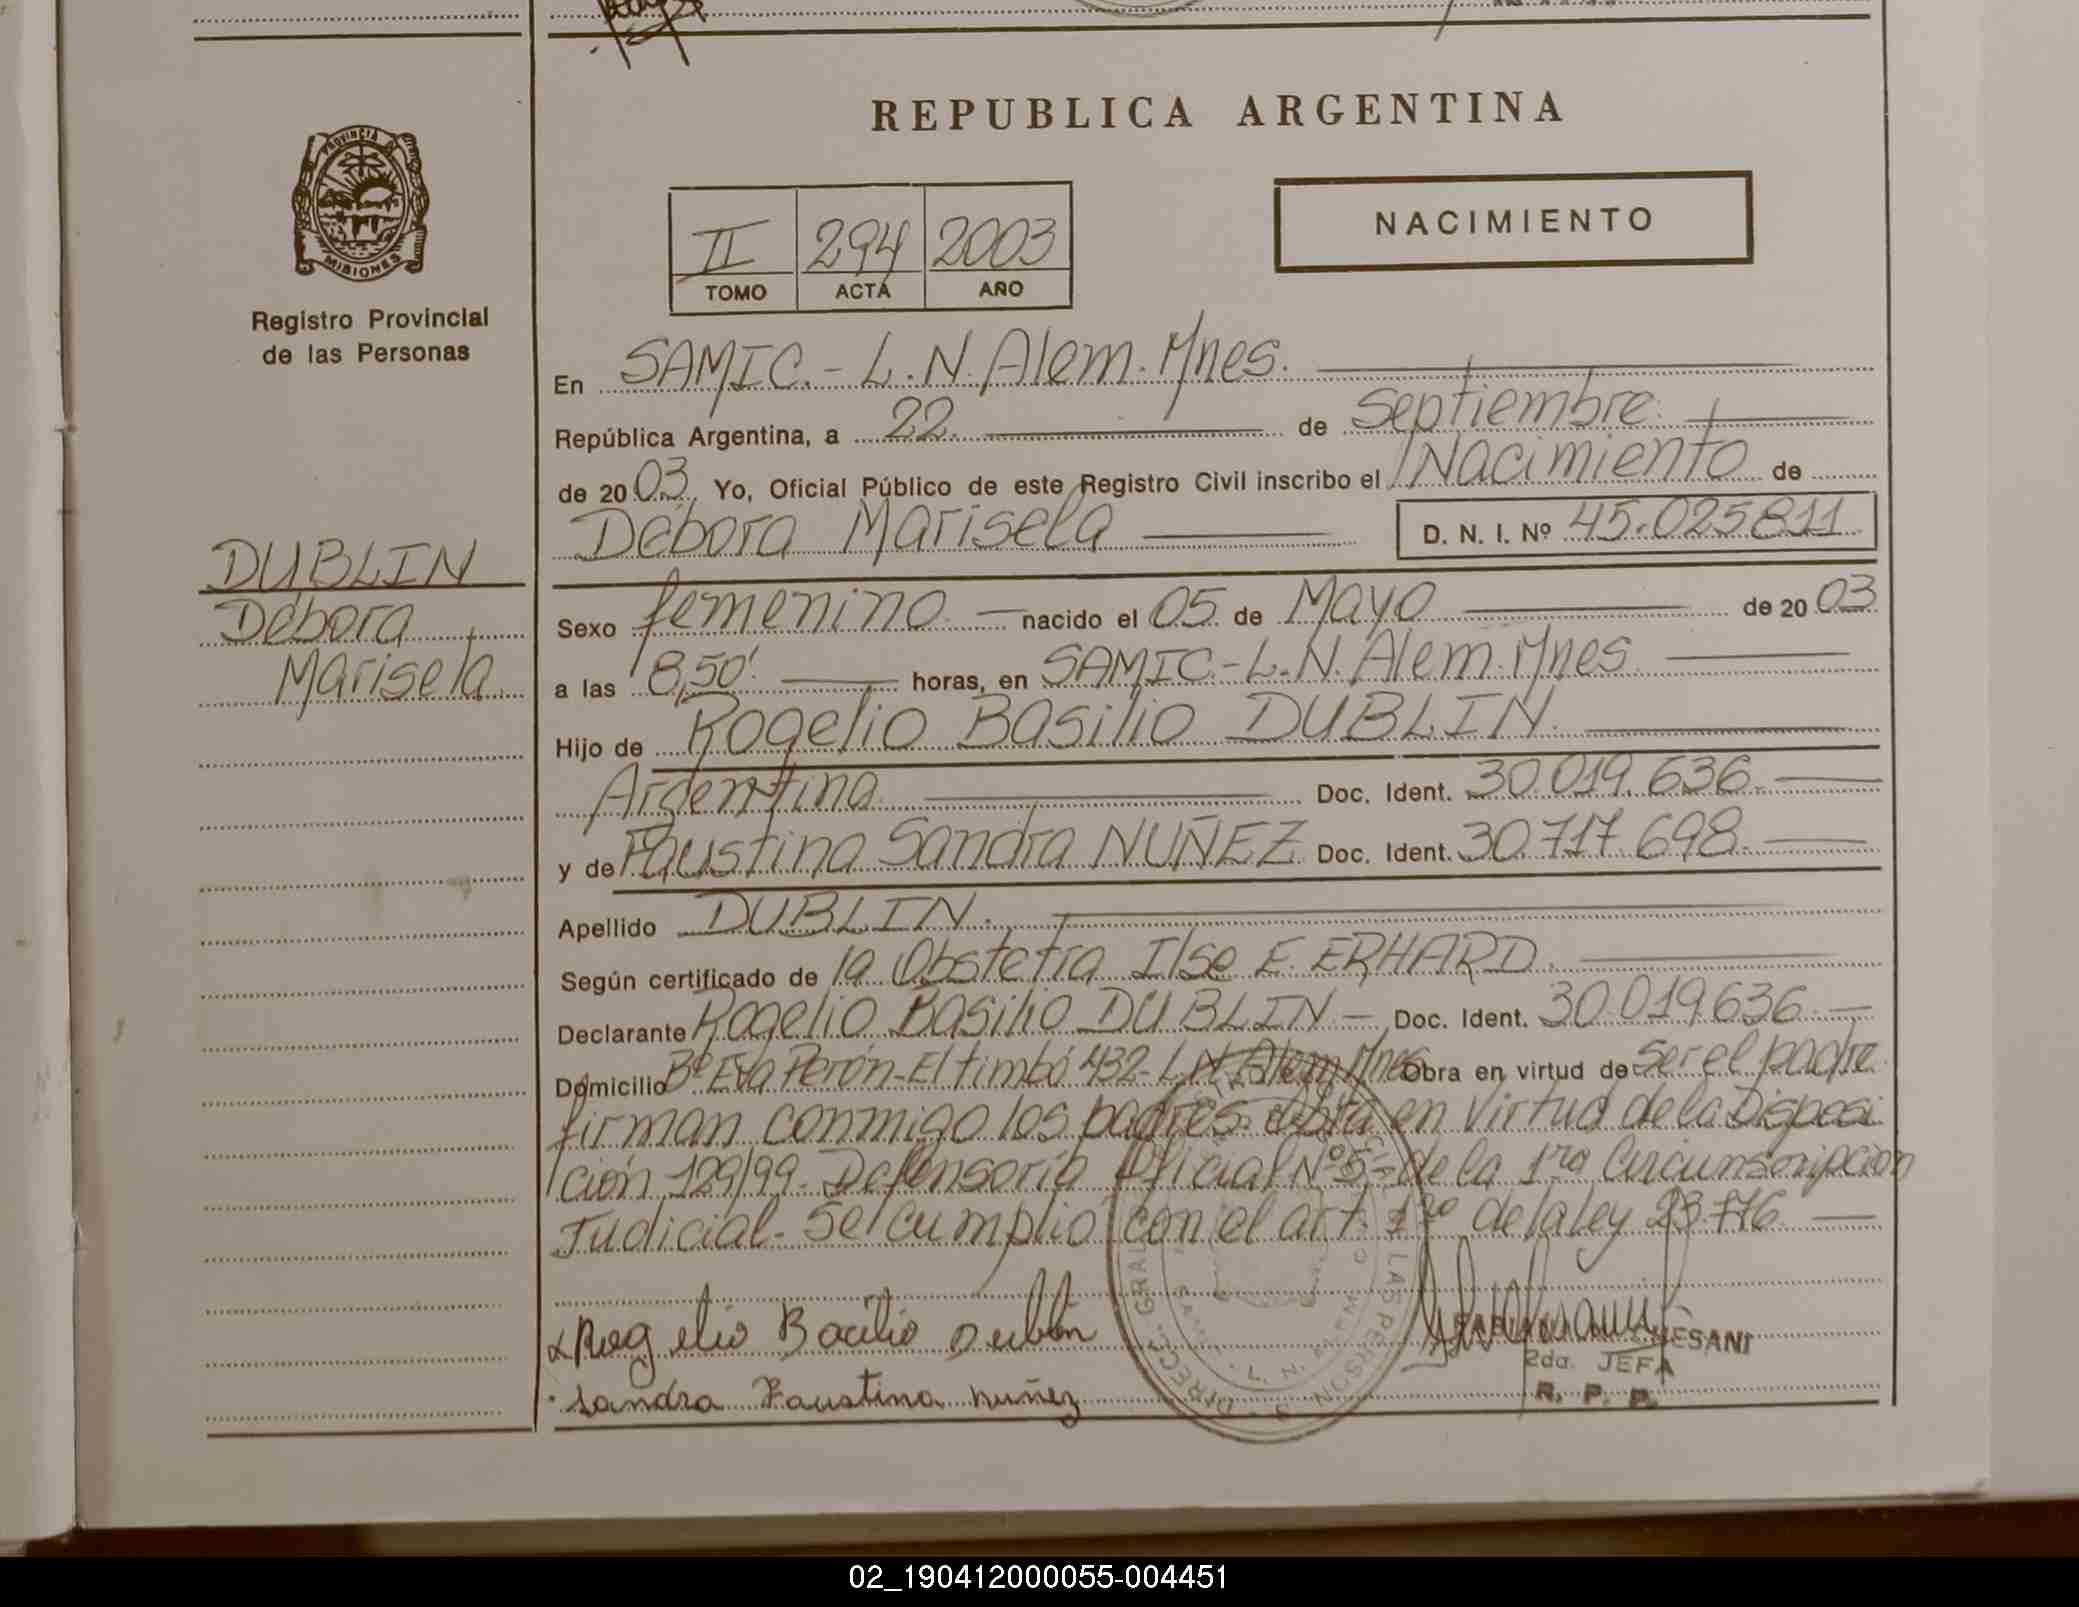 REPUBLICA ARGENTINA
PROVINCIA DE
MISIONES
Registro Provincial
de las Personas
NACIMIENTO
II 294 2003
TOMO ACTA AÑO
En SAMIC.- L.N. Alem. Mnes.
República Argentina, a 22. de Septiembre
de 2003. Yo, Oficial Público de este Registro Civil inscribo el Nacimiento de
Débora Marisela D. N. I. Nº 45.025811
DUBLIN
Débora
Marisela
Sexo femenino nacido el 05 de Mayo de 2003
a las 8,50' horas, en SAMIC.-L.N. Alem. Mnes
Hijo de Rogelio Basilio DUBLIN.
Argentina Doc. Ident. 30.019.636.
y de Faustina Sandra NUÑEZ Doc. Ident. 30.717.698.
Apellido DUBLIN.
Según certificado de la Obstetra Ilse E. ERHARD.
Declarante Rogelio Basilio DUBLIN - Doc. Ident. 30.019.636.
Domicilio Bº Eva Perón-El timbó 432- L.N. Alem Mnes Obra en virtud de ser el padre
firman conmigo los padres. obra en virtud de la Disposi
ción 129/99- Defensoría Oficial Nº5- de la 1ra Circunscripción
Judicial- Se cumplió con el art. 1ro de la ley 23.776
Rogelio Bacilio Dublin
Sandra Faustina nuñez
2da. JEFA
R. P. P.
02_190412000055-004451